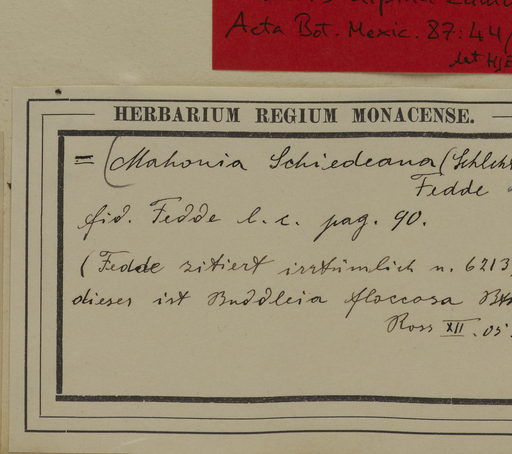 Acta Bot. Mexic. 87: 44
HERBARIUM REGIUM MONACENSE.
= (Mahonia Schiedeana (Schlch
Fedde
fid. Fedde l. c. pag. 90.
(Fedde zitiert irrtümlich n. 6213,
dieses ist Buddleia floccosa
Ross XII. 05.